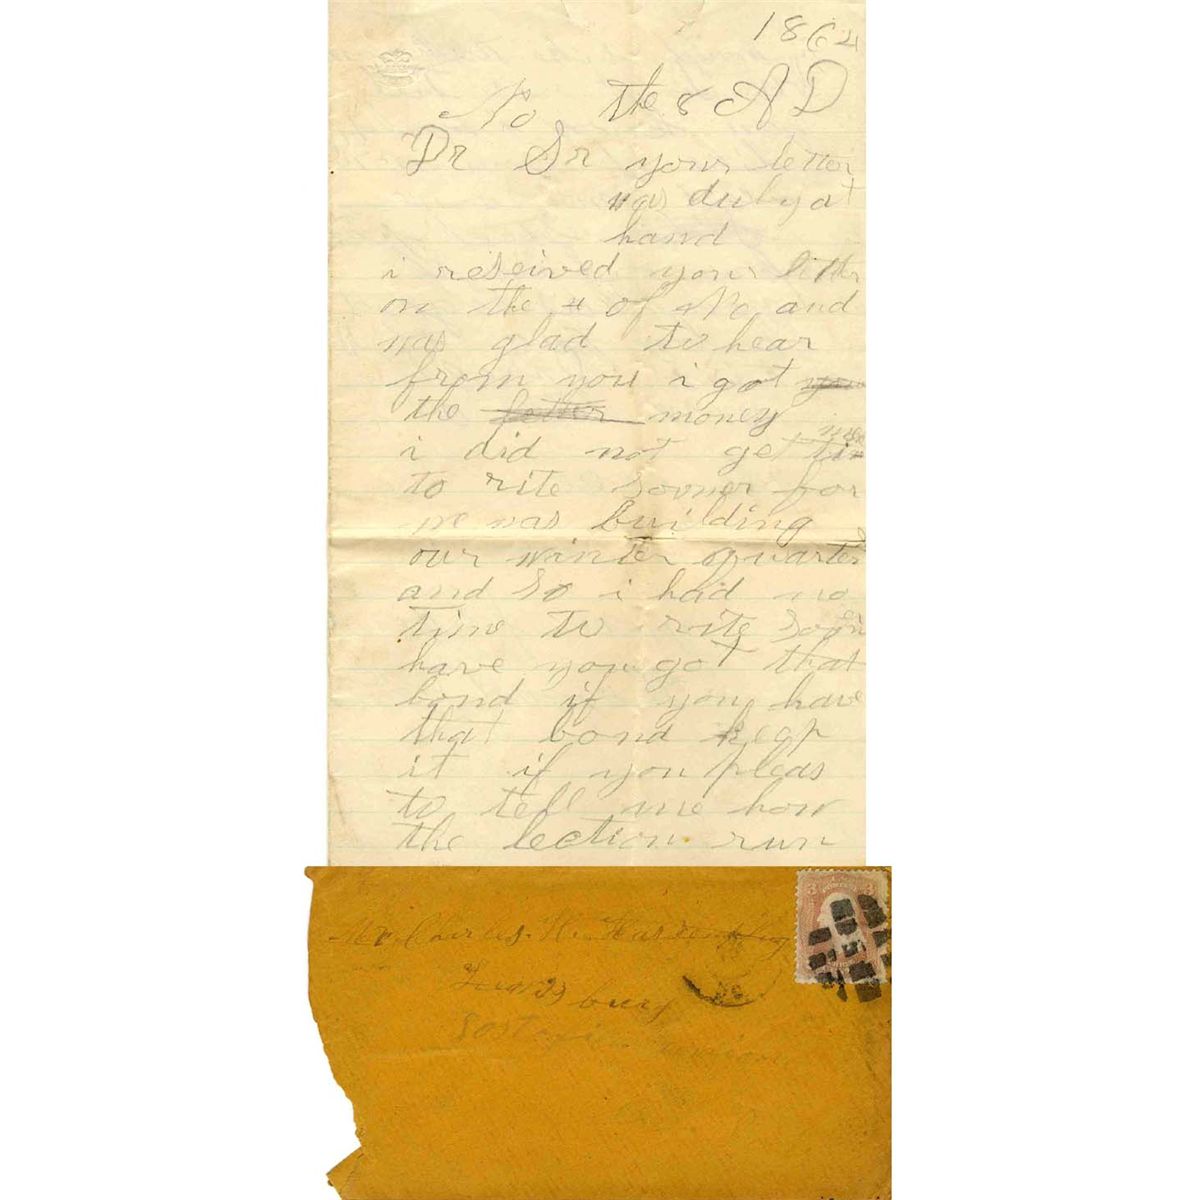 1864
No the 8 AD
Dr Sr your letter
was duly at
hand
i reseived your letter
on the 4 of No and
was glad to hear
from you i got your
the letter money
i did not get time
to rite sooner for
we was building
our winter quarters
and so i had no
time to rite sooner
have you got that
bond if you have
that bond keap
it if you pleas
to tell me how
the lection run
3 3
Mr Charles. H.